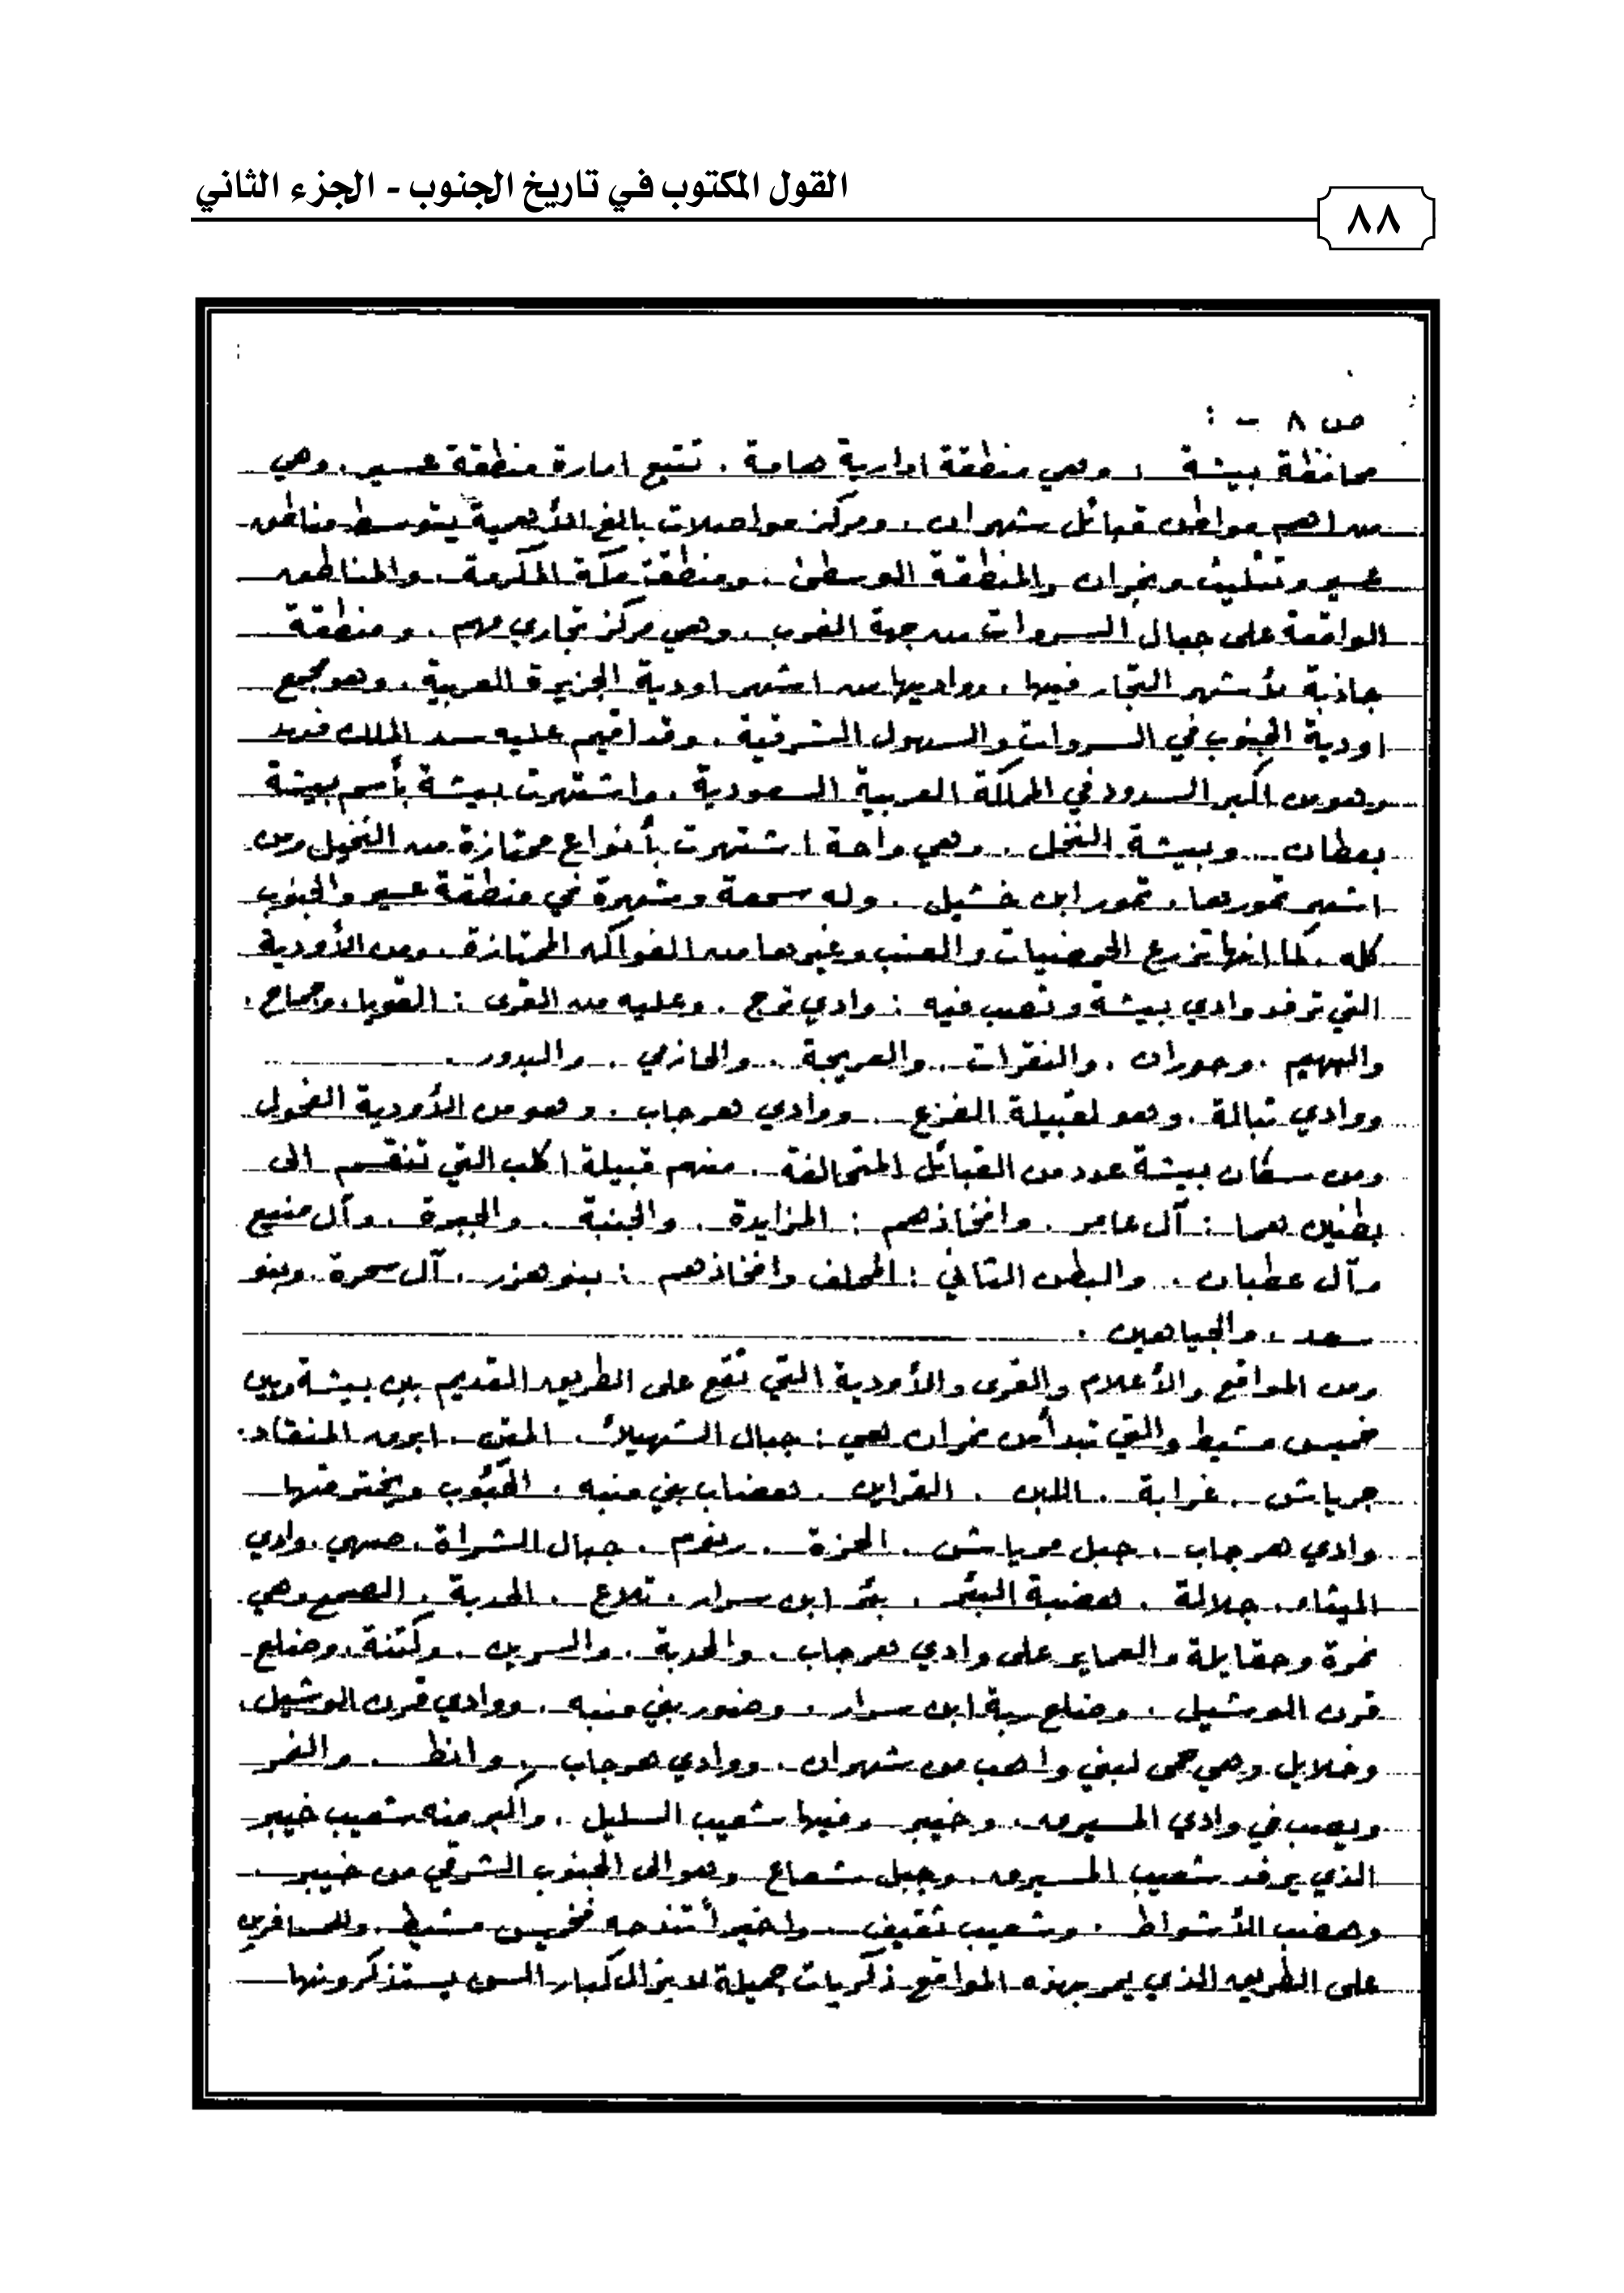 القول المكتوب في تاريخ الجنوب - الجزء الثاني
٨٨
ص ٨ - :
محافظة بيشة ، وهي منطقة ادارية هامة . تتبع امارة منطقة عسير . وهي
من اهم مواطن قبائل شهران . ومركز مواصلات بالغ الأهمية يتوسط مناطق
عسير وتثليث ونجران والمنطقة الوسطى . ومنطقة مكة المكرمة . والمناطق
الواقعة على جبال السروات من جهة الغرب . وهي مركز تجاري مهم . ومنطقة
جاذبة لأشهر التجار فيها . وواديها من اشهر اودية الجزيرة العربية . وهو مجمع
اودية الجنوب في السروات والسهول الشرقية . وقد اقيم عليه سد الملك فهد
وهو من اكبر السدود في المملكة العربية السعودية . واشتهرت بيشة بأسم بيشة
بعطان . وبيشة النخل . وهي واحة اشتهرت بأنواع ممتازة من النخيل ومن
اشهر تمورها . تمور ابن خشيل . وله سمعة وشهرة في منطقة عسير والجنوب
كله . كما انها تزرع الحمضيات والعنب وغيرها من الفواكه الممتازة . ومن الأودية
التي ترفد وادي بيشة وتصب فيه : وادي ترج . وعليه من القرى : القوبا .
والبهيم . وجوران . والنقرات . والحازمي . والبدور .
ووادي تبالة . وهو لقبيلة الفزع . ووادي هرجاب . وهو من الأودية الفحول
ومن سكان بيشة عدد من القبائل المتحالفة . منهم قبيلة اكلب التي تنقسم الى
بطنين هما : آل عامر . وافخاذهم : المزايدة . والجنبة . والجبرة . وآل منيع
وآل عطبان . والبطن الثاني : المحلف وافخاذهم : بنو هزر . آل سمرة . وبنو
سعد . والجياهين .
ومن المواقع والأعلام والقرى والأودية التي تقع على الطريق القديم بين بيشة وبين
خميس مشيط والتي تبدأ من نمران هي : جبال الشهيلاء . المتن . ابرق المنقاد .
جرياش . غرابة . اللبن . القراين . هضاب بني منبه . الحبوب ويخترقها
وادي هرجاب . جبل مرياش . الحزة . رغوم . جبال الشراة . صهي . وادي
الميثاء . جلالة . هضبة البئر . بئر ابن سرار . تلاع . الحدبة . الصمع وهي
نمرة وحقايلة والعماير على وادي هرجاب . والحدبة . والسرين . وكتنة . وضلع
قرن الوشيل . وضلع رية ابن سرار . وضور بني منبه . ووادي قرن الوشيل .
وخلايل وهي حمى لبني واهب من شهران . ووادي هرجاب . وانظ . والغمر
ويصب في وادي المسيرق . وخيبر وفيها شعيب السليل . واكبر منه شعيب خيبر
الذي يرفد شعيب المسيرق . وجبل شعاع وهو الى الجنوب الشرقي من خيبر .
وهضب الأشواط . وشعيب ثقيف . واخيراً تندحه فخميس مشيط . وللمسافرين
على الطريق الذي يمر بهذه المواقع ذكريات جميلة لا يزال كبار السن يستذكرونها